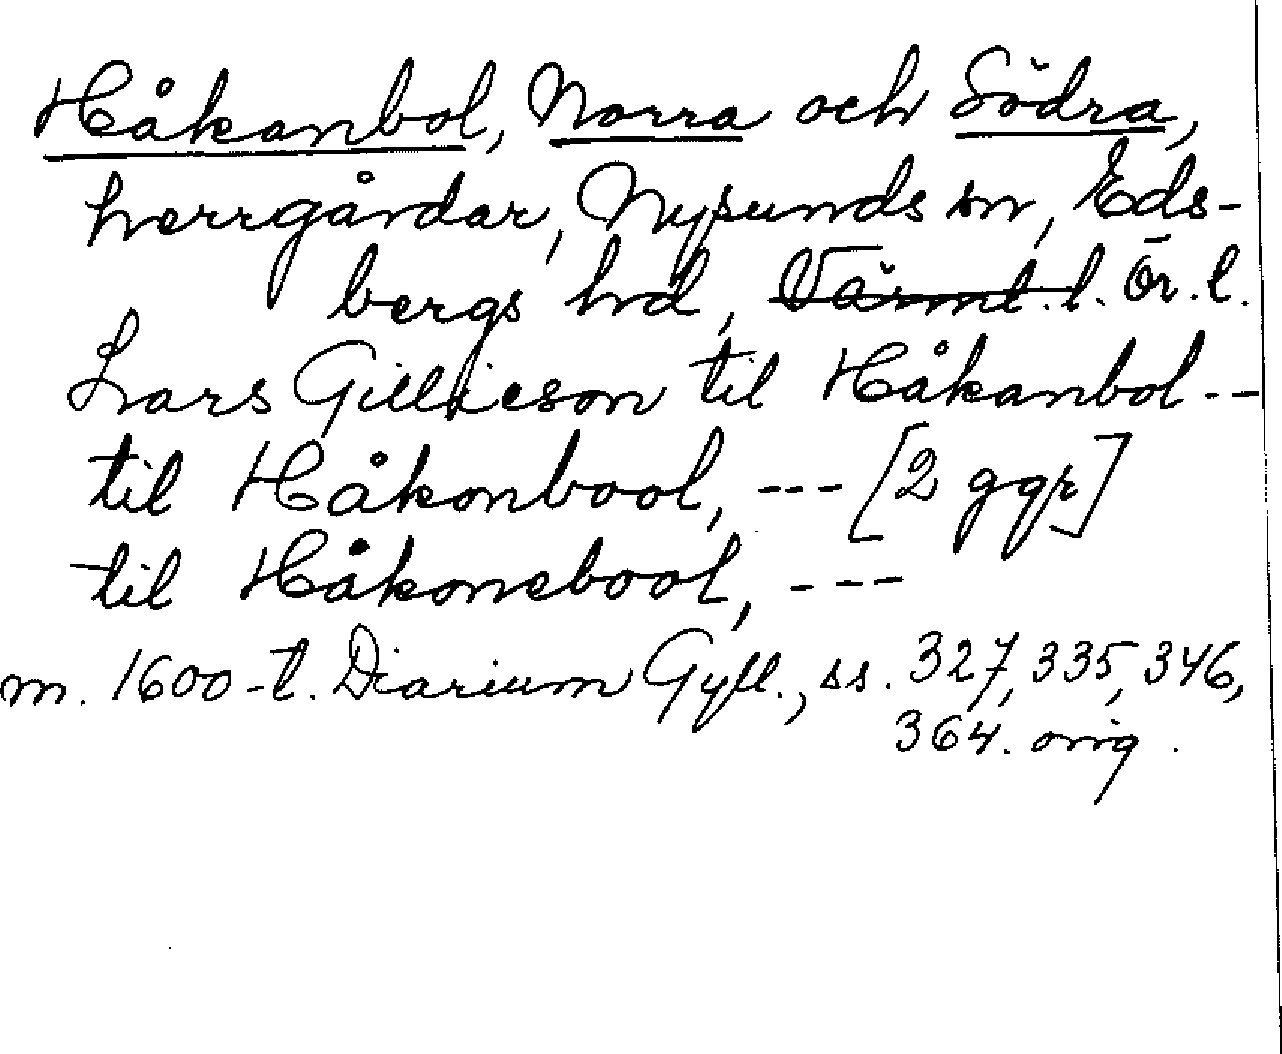 Håkanbol, Norra och Södra,
herrgårdar, Nysunds sn, Eds-
bergs hd, Värml. l. Ör. l.
Lars Gilliieson til Håkanbol --
til Håkonbool, --- [2 ggr]
til Håkonebool, ---
m. 1600-t. Diarium Gyll., ss. 327, 335, 346,
364. orig.